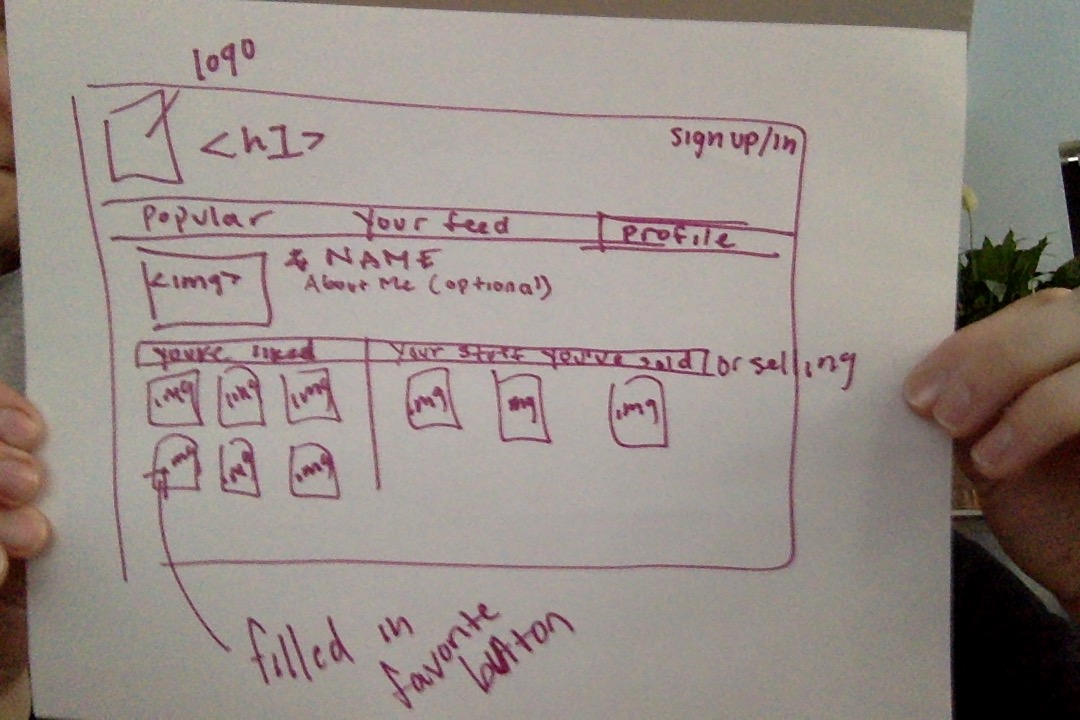 logo
<h1>
sign up/in
Popular
Your feed
Profile
<img>
NAME
About Me (optional)
you've liked
Your stuff you've sold
or selling
img img img
img img img
img img img
filled in
favorite
button